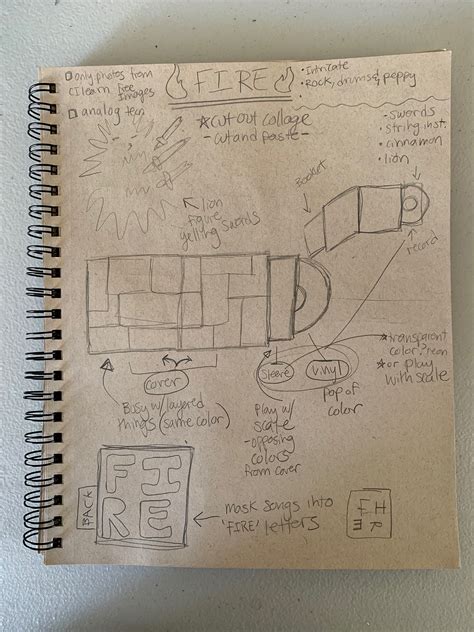 only photos from
CI learn free
images
analog tech
FIRE
• Intricate
• Rock, drums, & peppy
★ Cut out collage
- cut and paste -
- swords
• string inst.
• cinnamon
• lion
lion
figure
yelling swords
Booklet
record
cover
Busy w/ layered
things (same color)
Sleeve
Play w/
scale
- opposing
colors
from cover
Vinyl
pop of
color
★ transparent
color? neon
★ or play
with scale
BACK
FI
RE
mask songs into
'FIRE' letters